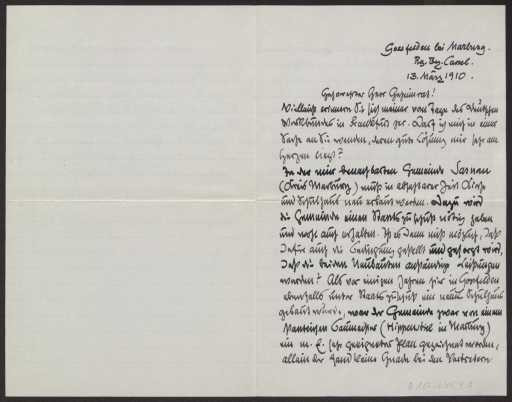 Goßfelden bei Marburg.
Rg. Bez. Cassel.
13. März 1910.
Geehrtester Herr Geheimrat!
Vielleicht erinnern Sie sich meiner vom Tage des Deutschen
Werkbundes in Frankfurt her. Darf ich mich in einer
Sache an Sie wenden, deren gute Lösung mir sehr am
Herzen liegt?
In der mir benachbarten Gemeinde Sarnau
(Kreis Marburg) muß in absehbarer Zeit Kirche
und Schulhaus neu erbaut werden. Dazu wird
die Gemeinde einen Staatszuschuß nötig haben
und wohl auch erhalten. Ist es denn nicht möglich, daß
dafür auch die Bedingung gestellt und gesorgt wird,
daß die beiden Neubauten anständige Leistungen
werden? Als vor einigen Jahren hier in Goßfelden
ebenfalls unter Staatszuschuß ein neues Schulhaus
gebaut wurde, war der Gemeinde zwar von einem
Baumeister (in Marburg)
ein m. E. sehr geeigneter Plan gezeichnet worden,
allein der fand keine Gnade bei den Vertretern